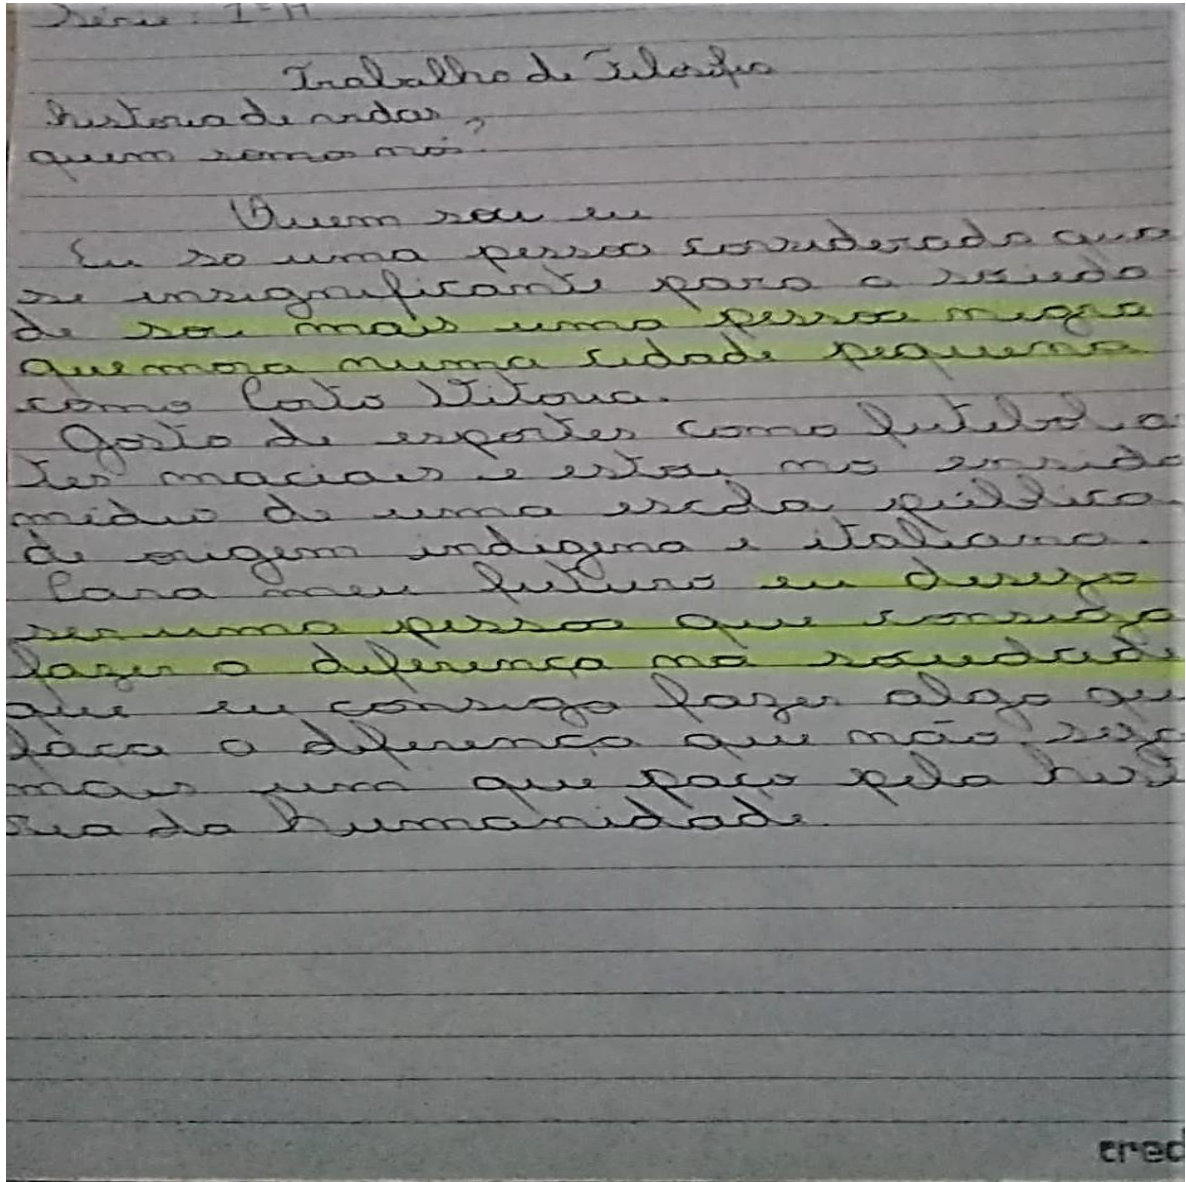 Série: 1ª A
Trabalho de Filosofia
historia de vidas,
quem somo nós?
Quem sou eu
Eu so uma pessoa considerada qua
se insignificante para a socieda
de sou mais uma pessoa negra
que mora numa cidade pequena
como Porto Vitoria.
Gosto de esportes como futebol, a
tes maciais e estou no ensido
médio de uma escola pública
de origem indigena e italiana.
Para meu futuro eu desejo
ser uma pessoa que consiga
fazer a diferença na sociedade
que eu consiga fazer algo que
faca a diferença que não seja
mais um que paço pela hist
ria da humanidade.
cred